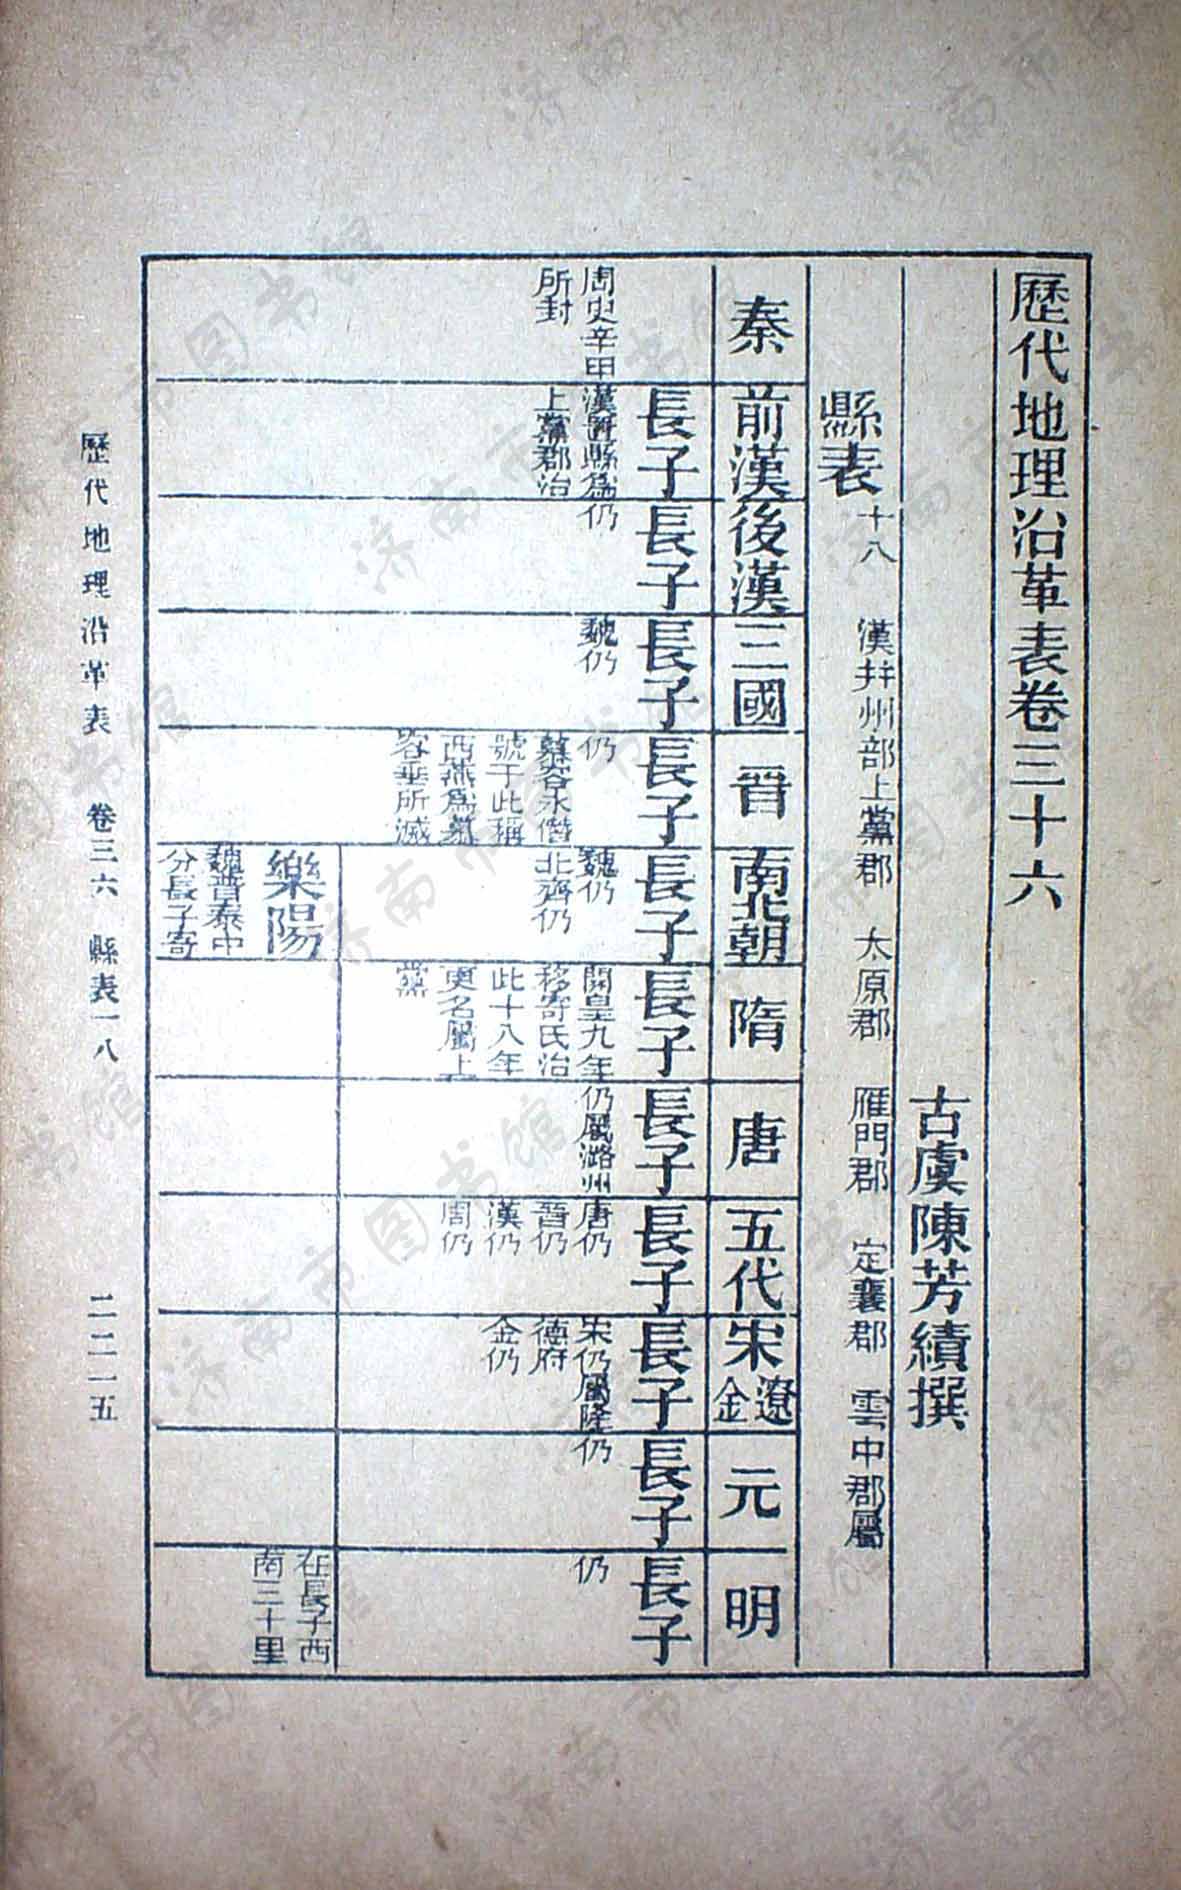 歷代地理沿革表卷三十六
古虞陳芳績撰
縣表十八 漢幷州部上黨郡 太原郡 雁門郡 定襄郡 雲中郡屬
秦
前漢
後漢
三國
晉
南北朝
隋
唐
五代
宋遼金
元
明
周史辛甲
所封
長子
漢置縣爲
上黨郡治
長子
仍
長子
魏仍
長子
仍
慕容永僭
號于此稱
西燕爲慕
容垂所滅
長子
魏仍
北齊仍
長子
開皇九年
移寄氏治
此十八年
更名屬上
黨
長子
仍屬潞州
長子
唐仍
晉仍
漢仍
周仍
長子
宋仍屬隆
德府
金仍
長子
仍
長子
仍
樂陽
魏普泰中
分長子寄
在長子西
南三十里
歷代地理沿革表 卷三六 縣表一八 二二一五
济南市图书馆